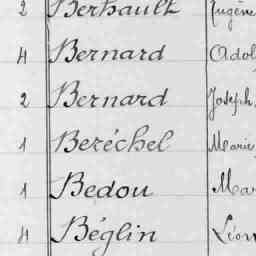 2 Berhault Eugène
4 Bernard Adol
2 Bernard Joseph
1 Beréchel Marie
1 Bedou Mar
4 Béglin Léon